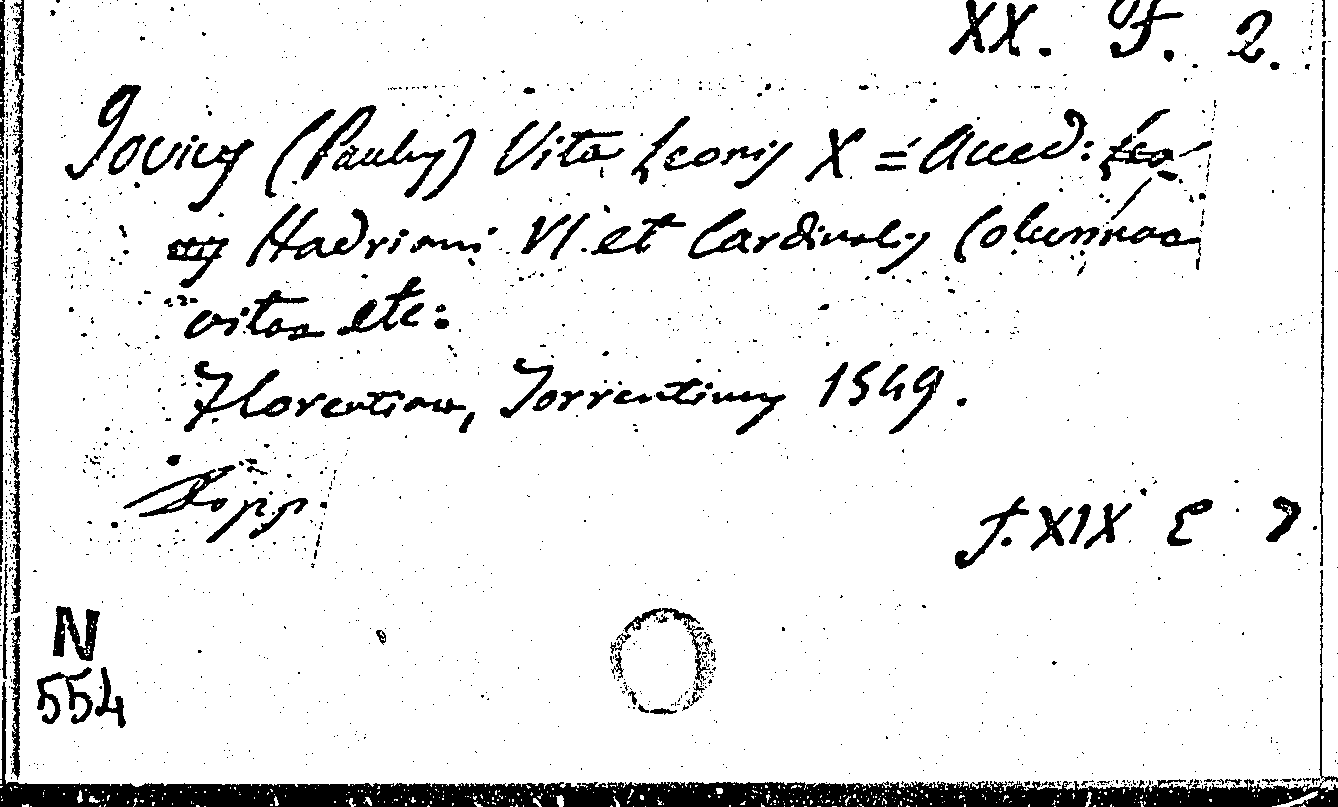 XX. F. 2.
Jovius (Paulus) Vita Leonis X = Acced:
Hadriani VI et Cardinalis Columnae
vitae etc:
Florentiae, Torrentinus 1549.
Kopp.
f. XIX E 7
N
554